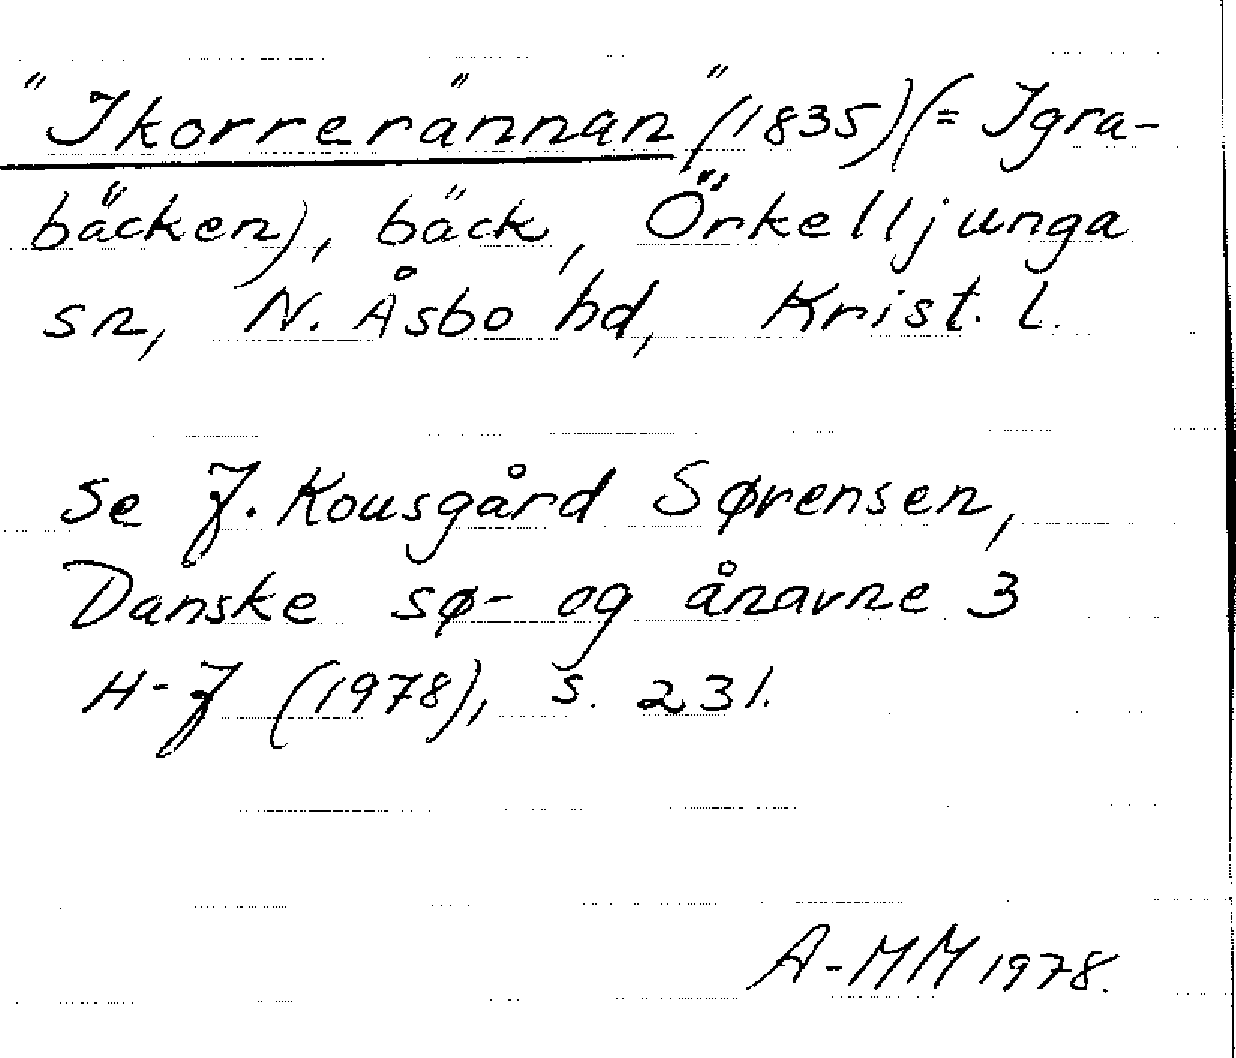 "Ikorrerännan" (1835) (= Igra-
bäcken), bäck, Örkelljunga
sn, N. Åsbo hd, Krist. l.
Se J. Kousgård Sørensen,
Danske sø- og ånavne 3
H-J (1978), s. 231.
A-MM 1978.